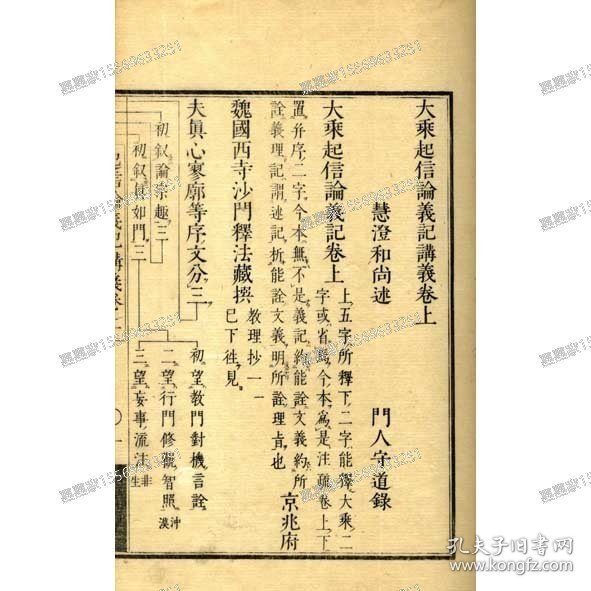 大乘起信論義記講義卷上
慧澄和尚述 門人守道錄
大乘起信論義記卷上
上五字所釋下二字能釋大乘二
字或省爲今本爲是注疏卷上下
置弁序二字今本無不是義記約能詮文義約所
詮義理記謂述記析能詮文義明所詮理旨也
京兆府
魏國西寺沙門釋法藏撰
教理抄一一
巳下徃見
夫眞心寥廓等序文分三
初叙論宗趣三
初望教門對機言詮
二望行門修觀智照沖漠
三望妄事流注非生
初叙眞如門三
起信論義記講義卷上
孔夫子旧书网
www.kongfz.com